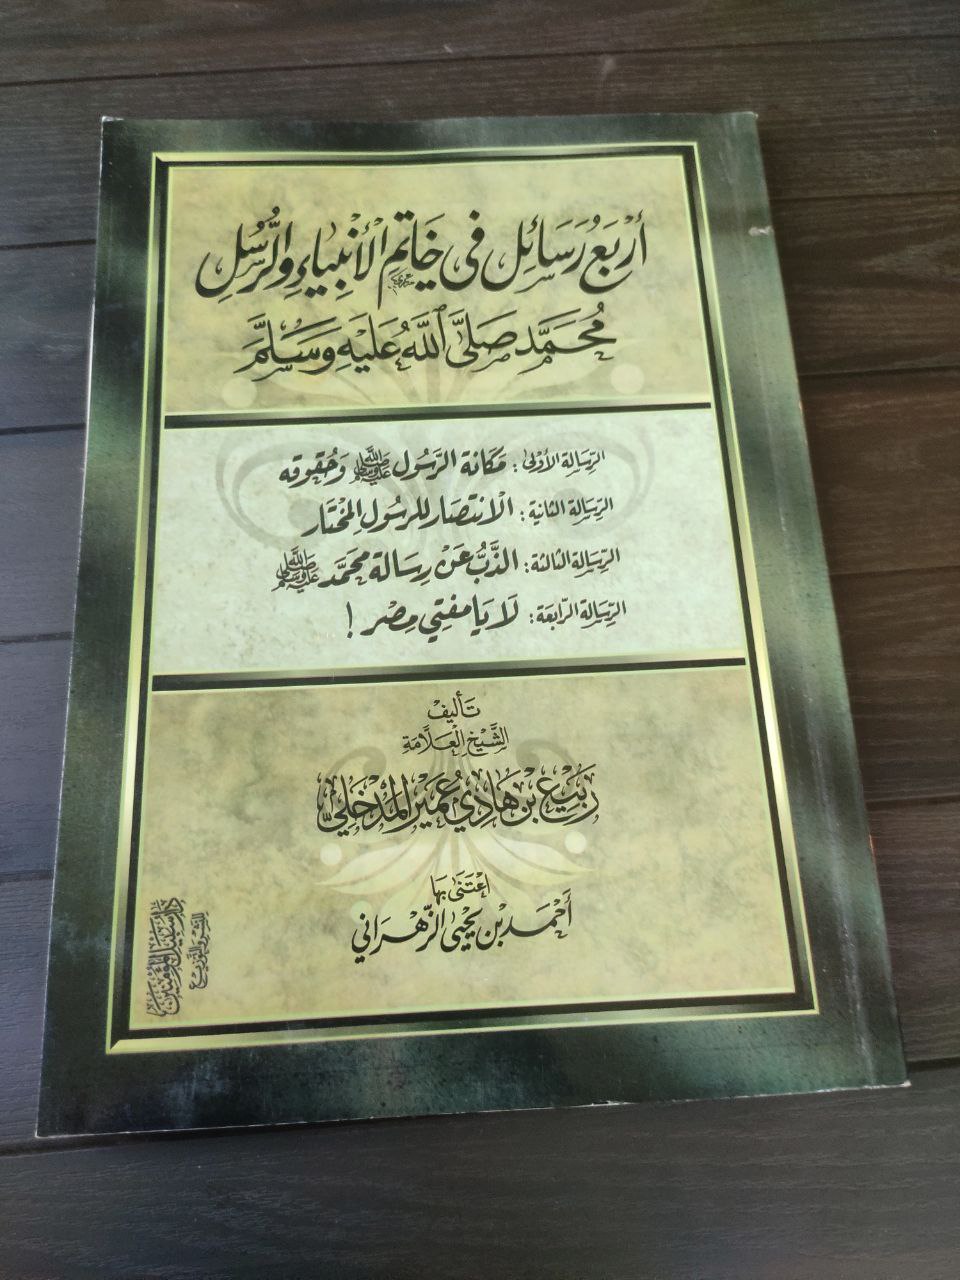 أَرْبَعُ رَسَائِل فِي خَاتَمِ الأَنْبِيَاءِ وَالرُّسُلِ
مُحَمَّد صَلَّى ٱللَّهُ عَلَيْهِ وَسَلَّمَ
الرِّسَالة الأولى: مَكَانة الرَّسُول ﷺ وَحُقُوقه
الرِّسَالة الثانية: الْانتصَار للرسُول المُختَار
الرِّسَالة الثالثة: الذَّبُّ عَنْ رِسالة محمَّد ﷺ
الرِّسَالة الرَّابعة: لَا يَا مفتِي مِصْر !
تَأليف
الشَّيْخ العَلَّامَة
رَبِيْع بْن هَادِي عُمَيْر المَدْخَلي
اعْتَنَى بِهَا
أَحْمَد بْن يَحْيَى الزَّهْرَاني
دَار سَبيْل المُؤمنين
للنشر والتوزيع